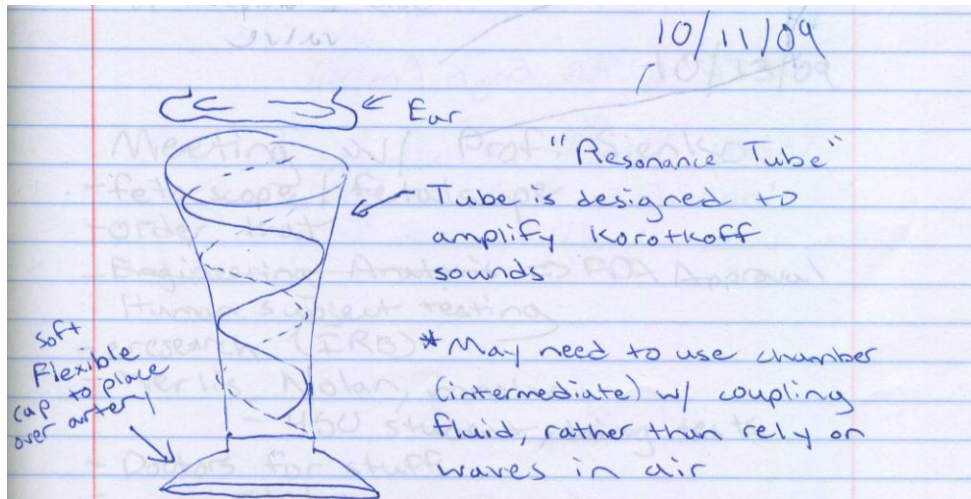 10/11/09
Ear
"Resonance Tube"
Tube is designed to
amplify Korotkoff
sounds
soft
Flexible
cap to place
over artery
*May need to use chamber
(intermediate) w/ coupling
fluid, rather than rely on
waves in air